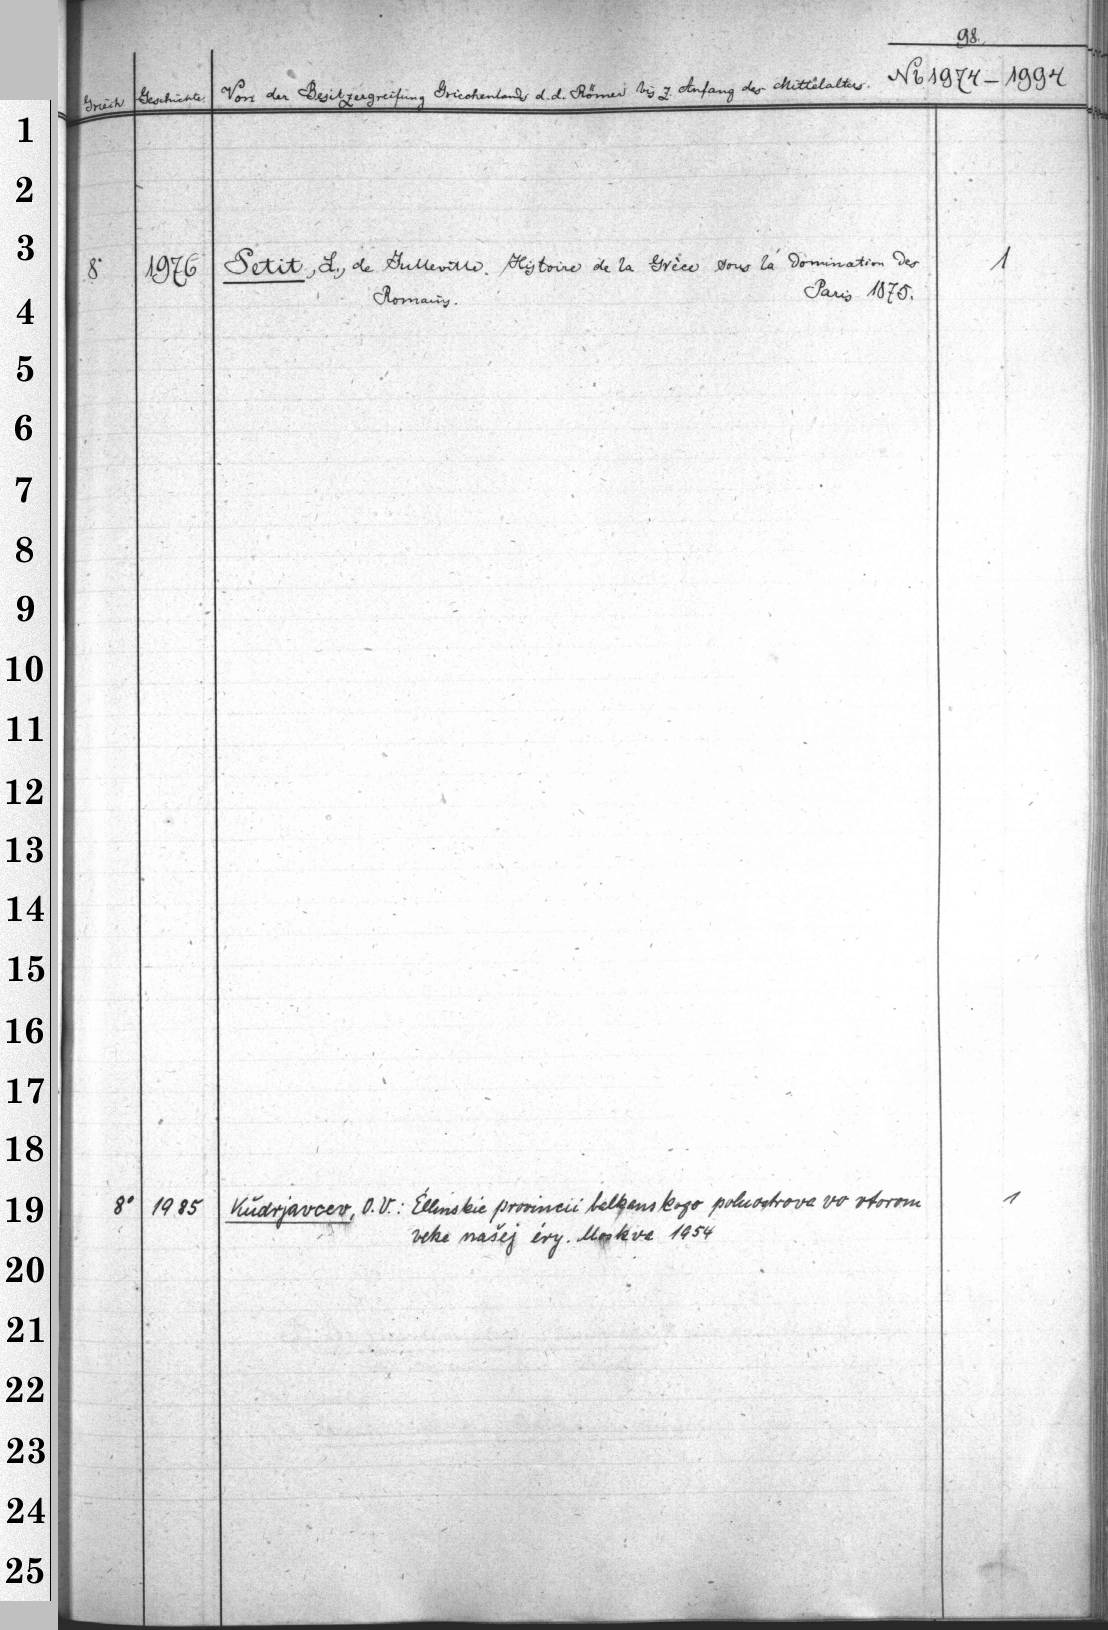 98.
Griech Geschichte. Von der Besitzergreifung Griechenlands d. d. Römer bis z. Anfang des Mittelalters. № 1974 – 1994
1
2
3
8° 1976 Petit, L., de Julleville. Histoire de la Grèce sous la domination des 1
Romains. Paris 1875.
4
5
6
7
8
9
10
11
12
13
14
15
16
17
18
19
8° 1985 Kudrjavcev, O.V.: Ėllinskie provincii balkanskogo poluostrova vo vtorom 1
veke našej ėry. Moskva 1954
20
21
22
23
24
25